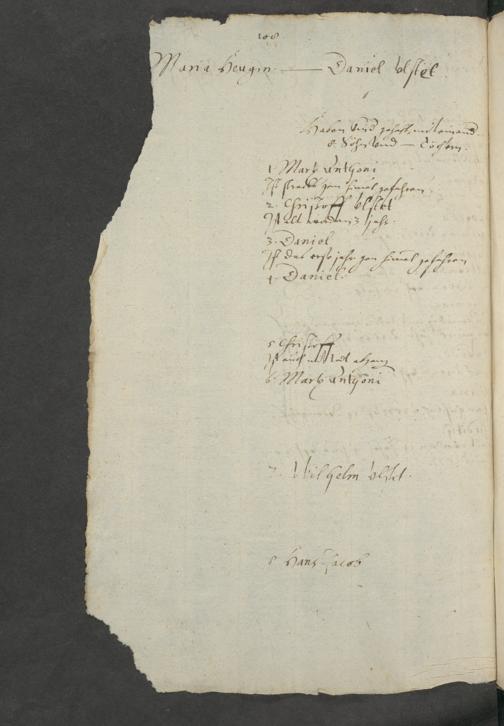 108
Maria Heugin — Daniel Ulstet
Haben Und gehabt mit einand
8. Söhn Und — Töchtern.
1 Marx Anthoni
Ist gen himel gefahren.
2. Christoff Ulstet
Ist alt worden 3 jahr.
3. Daniel
Ist das erst jahr gen himel gefahren
4. Daniel.
5 Christoff
Ist auch
6. Marx Anthoni
7. Wilhelm Ulstet.
8 Hans Jacob